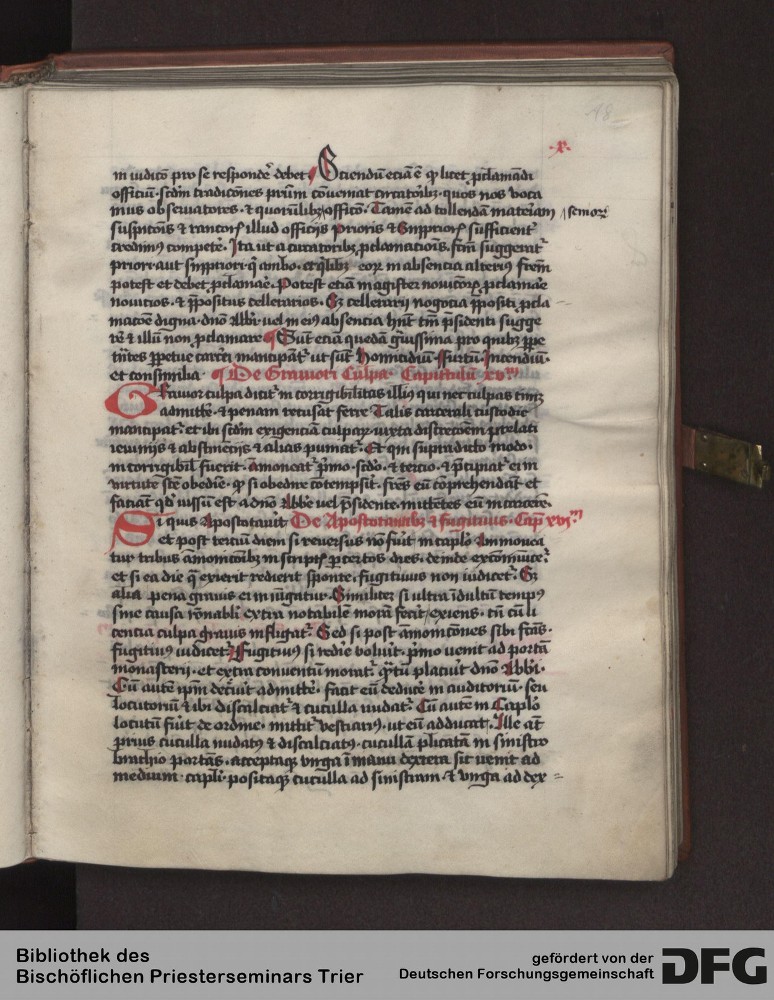 18
·x·
in iudico pro se respondẽ debet. Sciendũ eciã ẽ qͥ licet ꝓclamãdi
officiũ scd̃m tradicõnes pr̃um cõueniat circatoribꝫ quos nos voca
mus obseruatores · ⁊ quorũlibꝫ officõ · Tamen ad tollendã materiam / seniorꝝ
suspicõis ⁊ rancorꝭ illud officijs prioris ⁊ Supprioris sufficient̃
credimꝰ competẽ · Ita ut a circatoribꝫ ꝓclamacionis · suggerat̃
priori aut suppriori · ambo · eoꝝ in absencia alteriꝰ frẽm
potest et debet ꝓclamare · Potest eciã magister nouicioꝝ ꝓclamare
nouicios · ⁊ p̃positus cellerarios · Sꝫ cellerarij negocia p̃positi ꝓcla
macõe digna · dnõ Abbi · vel in eiꝰ absencia hñt tm̃ p̃sidenti sugge
rẽ ⁊ illũ non ꝓclamare Sunt eciã quedã grauissima pro quibꝫ ꝑpe
trãtes ꝑpetue carcẽi mancipãt̃ ut sũt homicidiũ · furtũ · Incendiũ ·
et consimilia · De Grauiori Culpa · Capitulũ xvᵐ
Grauior culpa dicit̃ in corrigibilitas illiꝰ qui nec culpas timꝫ
admittẽ · ⁊ penam recusat ferre Talis carcerali custodie
mancipat̃ · et ibi scd̃m exigenciã culpaꝝ iuxta discrecõem p̃lati
ieiunijs ⁊ abstinẽcijs ⁊ alias punit̃ · Et qui supradicto modo ·
in corrigibil̃ fuerit · Amoneat̃ p̃mo · scd̃o · ⁊ tercio · ⁊ p̃cipiat̃ ei in
virtute sc̃e obediẽ · qͥ si obedire cõtempsit · fres eũ cõprehendãt et
faciãt qd̃ iussũ est a dnõ Abbe vel p̃sidente mittẽtes eũ in carcerẽ ·
Si quis Apostatauit De Apostotantibꝫ ⁊ fugitiuis · Cap̃ xviᵐ
et post terciũ diem si reuersus nõ fuit in capl̃o Ammonea
tur tribus amonicõibꝫ in scriptis ꝑ certos dies · deinde excõmuniceť ·
et si ea die qͣ exierit redierit sponte · fugitiuus non iudiceť · Sꝫ
alia pena grauis ei in iũgatur · Similiteꝛ si ultra indultũ tempꝰ
sine causa rõnabli extra notabilem morã fecit / exiens · tñ cũ li
cencia culpa grauis infligať · Sed si post amonicõnes sibi fc̃as ·
fugitiuꝰ iudiceť Fugitiuꝰ si redire voluit · p̃mo veniet ad portã
monasterij · et extra conuentũ morať qͣtũ placuit dnõ Abbi ·
Cũ autẽ ip̃m decẽuit admittẽ · faciet eũ deducẽ in auditoriũ · seu
locutoriũ ⁊ ibi discalciať ⁊ cuculla nudať · Cũ autẽ in Capl̃o
locutũ fuit de ordine · mittiť vestiariꝰ · ut eũ adducat · Ille aũt
prius cuculla nudatꝰ ⁊ discalciatꝰ · cucullã plicatam in sinistro
brachio portãs · acceptaqꝫ virga ĩ manu dextera sic veniet ad
medium capl̃i · positaqꝫ cuculla ad sinistram · ⁊ virga ad dex =
Bibliothek des
Bischöflichen Priesterseminars Trier
gefördert von der
Deutschen Forschungsgemeinschaft
DFG